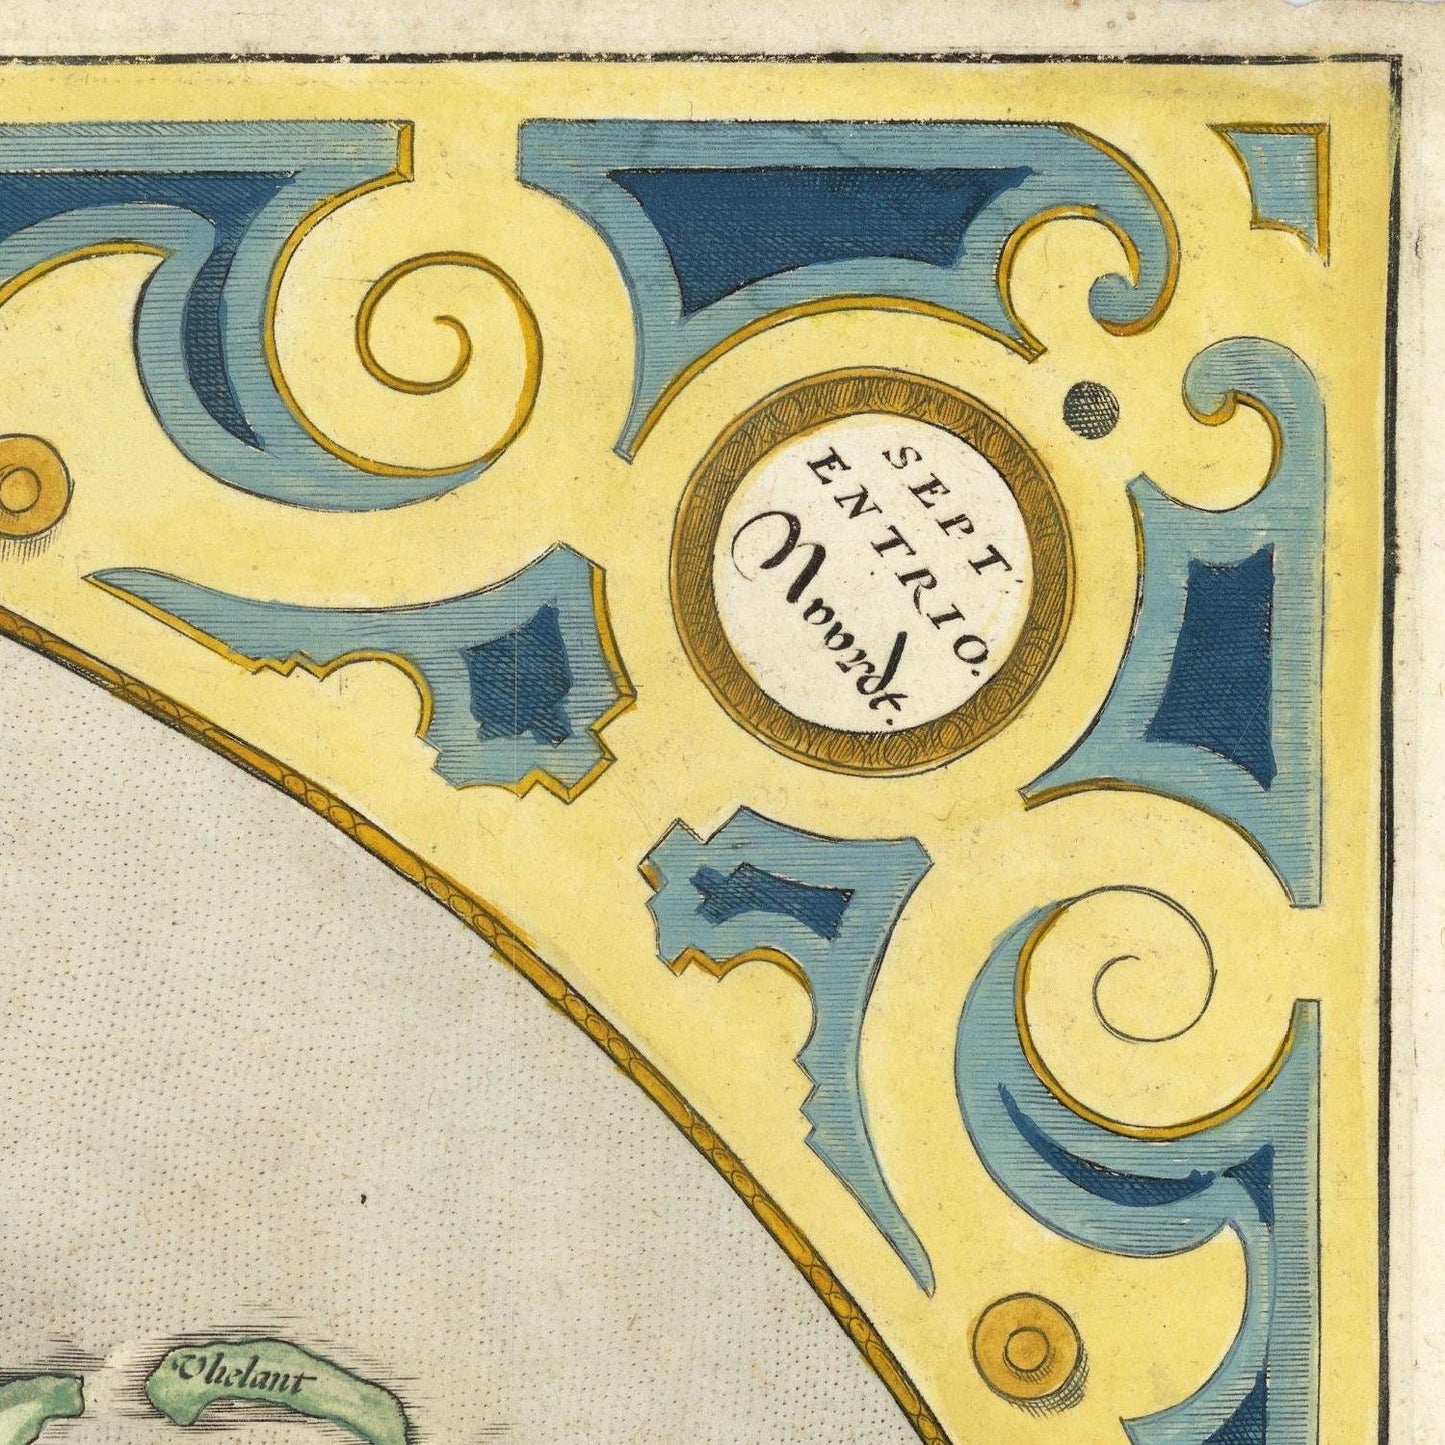 SEPT
ENTRIO.
Noordt.
Vhelant